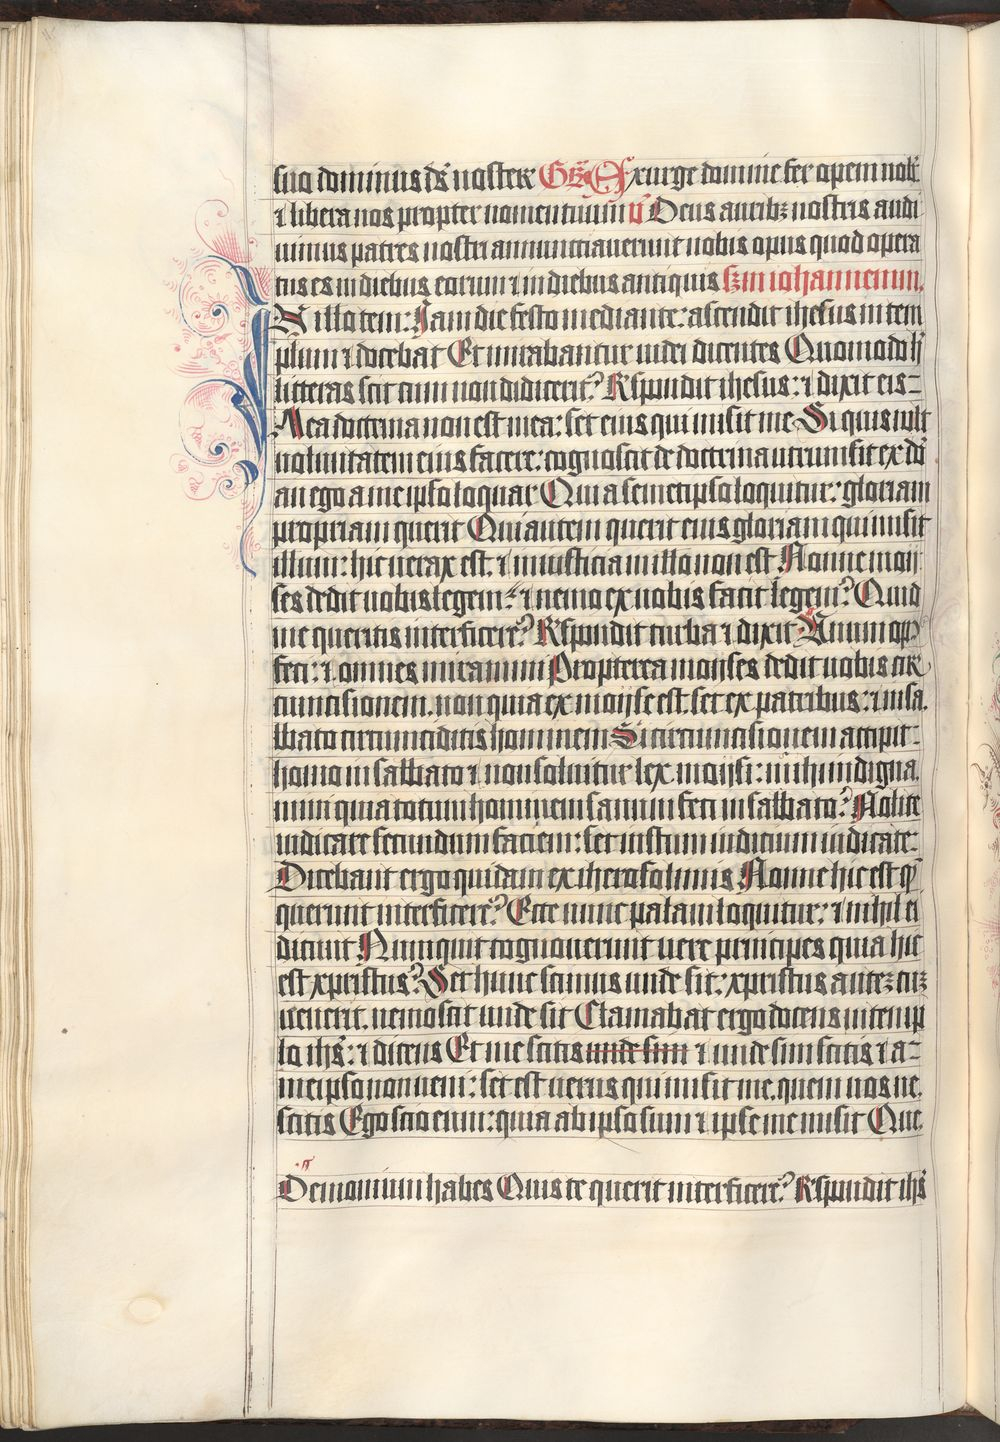 suo dominus ds̄ noster Gr̄ Exurge domine fer opem nob̄
⁊ libera nos propter nomen tuum v̄ Deus aurib⁊ nostris audi
uimus patres nostri annunciauerunt nobis opus quod opera
tus es in diebus eorum ⁊ in diebus antiquis s⁊m iohannenum.
IN illo tem: Jam die festo mediante: ascendit ihesus in tem
plum ⁊ docebat Et mirabantur iudei dicentes Quomodo h̄
litteras scit cum non didicerit? R̄spondit ihesus: ⁊ dixit eis
Mea doctrina non est mea: set eius qui misit me Si quis uult
uoluntatem eius facere: cognoscet de doctrina utrum sit ex do
an ego a me ipso loquar Qui a semetipso loquitur: gloriam
propriam querit Qui autem querit eius gloriam qui misit
illum: hic uerax est. ⁊ iniusticia in illo non est Nonne moy
ses dedit uobis legem: ⁊ nemo ex uobis facit legem? Quid
me queritis interficere? R̄spondit turba ⁊ dixit Unum op̄
feci: ⁊ omnes miramini Propterea moises dedit uobis cir
cuncisionem. non quia ex moise est. set ex patribus: ⁊ in sa.
bbato circunciditis hominem Si circuncisionem accipit
homo in sabbato ⁊ non soluitur lex moisi: mihi indigna.
mini quia totum hominem sanum feci in sabbato? Nolite
iudicare secundum faciem: set iustum iudicium iudicate
Dicebant ergo quidam ex iherosolimis Nonne hic est q̄
querunt interficere? Ecce nunc palam loquitur: ⁊ nihil ei
dicunt Nunquit cognouerunt uere principes quia hic
est xpristus? Set hunc scimus unde sit: xpristus aute⁊ cu⁊
uenerit. nemo scit unde sit Clamabat ergo docens in temp
lo ihs̄: ⁊ dicens Et me scitis unde sim ⁊ unde sim scitis ⁊ a
me ipso non ueni: set est uerus qui misit me. quem uos ne.
scitis Ego scio eum: quia ab ipso sum ⁊ ipse me misit Que.
Demonium habes Quis te querit interficere? R̄spondit ihs̄